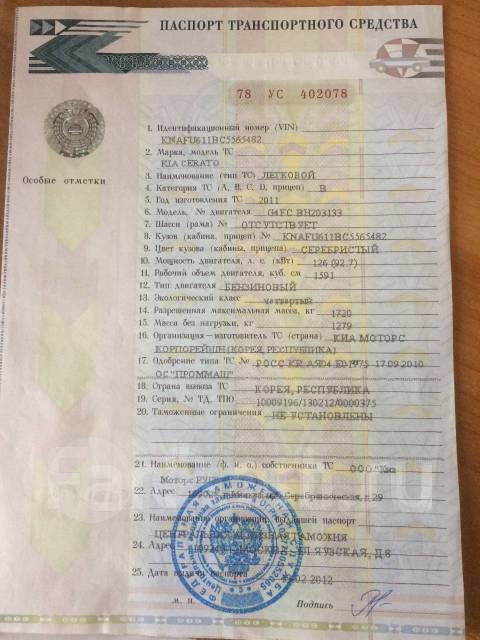 ПАСПОРТ ТРАНСПОРТНОГО СРЕДСТВА
78 УС 402078
Особые отметки
1. Идентификационный номер (VIN)
KNAFU611BC5565482
2. Марка, модель ТС
KIA CERATO
3. Наименование (тип ТС) ЛЕГКОВОЙ
4. Категория ТС (А, В, С, D, прицеп) В
5. Год изготовления ТС 2011
6. Модель, № двигателя G4FC BH203133
7. Шасси (рама) № ОТСУТСТВУЕТ
8. Кузов (кабина, прицеп) № KNAFU611BC5565482
9. Цвет кузова (кабины, прицепа) СЕРЕБРИСТЫЙ
10. Мощность двигателя, л. с. (кВт) 126 (92.7)
11. Рабочий объем двигателя, куб. см 1591
12. Тип двигателя БЕНЗИНОВЫЙ
13. Экологический класс четвертый
14. Разрешенная максимальная масса, кг 1720
15. Масса без нагрузки, кг 1279
16. Организация – изготовитель ТС (страна) КИА МОТОРС
КОРПОРЕЙШН (КОРЕЯ, РЕСПУБЛИКА)
17. Одобрение типа ТС № РОСС KR.АЯ04.Е01975 17.09.2010
ОС "ПРОММАШ"
18. Страна вывоза ТС КОРЕЯ, РЕСПУБЛИКА
19. Серия, № ТД, ТПО 10009196/130212/0000375
20. Таможенные ограничения НЕ УСТАНОВЛЕНЫ
21. Наименование (ф. и. о.) собственника ТС ООО "Киа
Моторс
22. Адрес Серебряническая, д.29
23. Наименование организации, выдавшей паспорт
ТАМОЖНЯ
24. Адрес МОСКВА, УЛ ЯУЗСКАЯ, Д.8
25. Дата выдачи паспорта 02.2012
М. П. Подпись